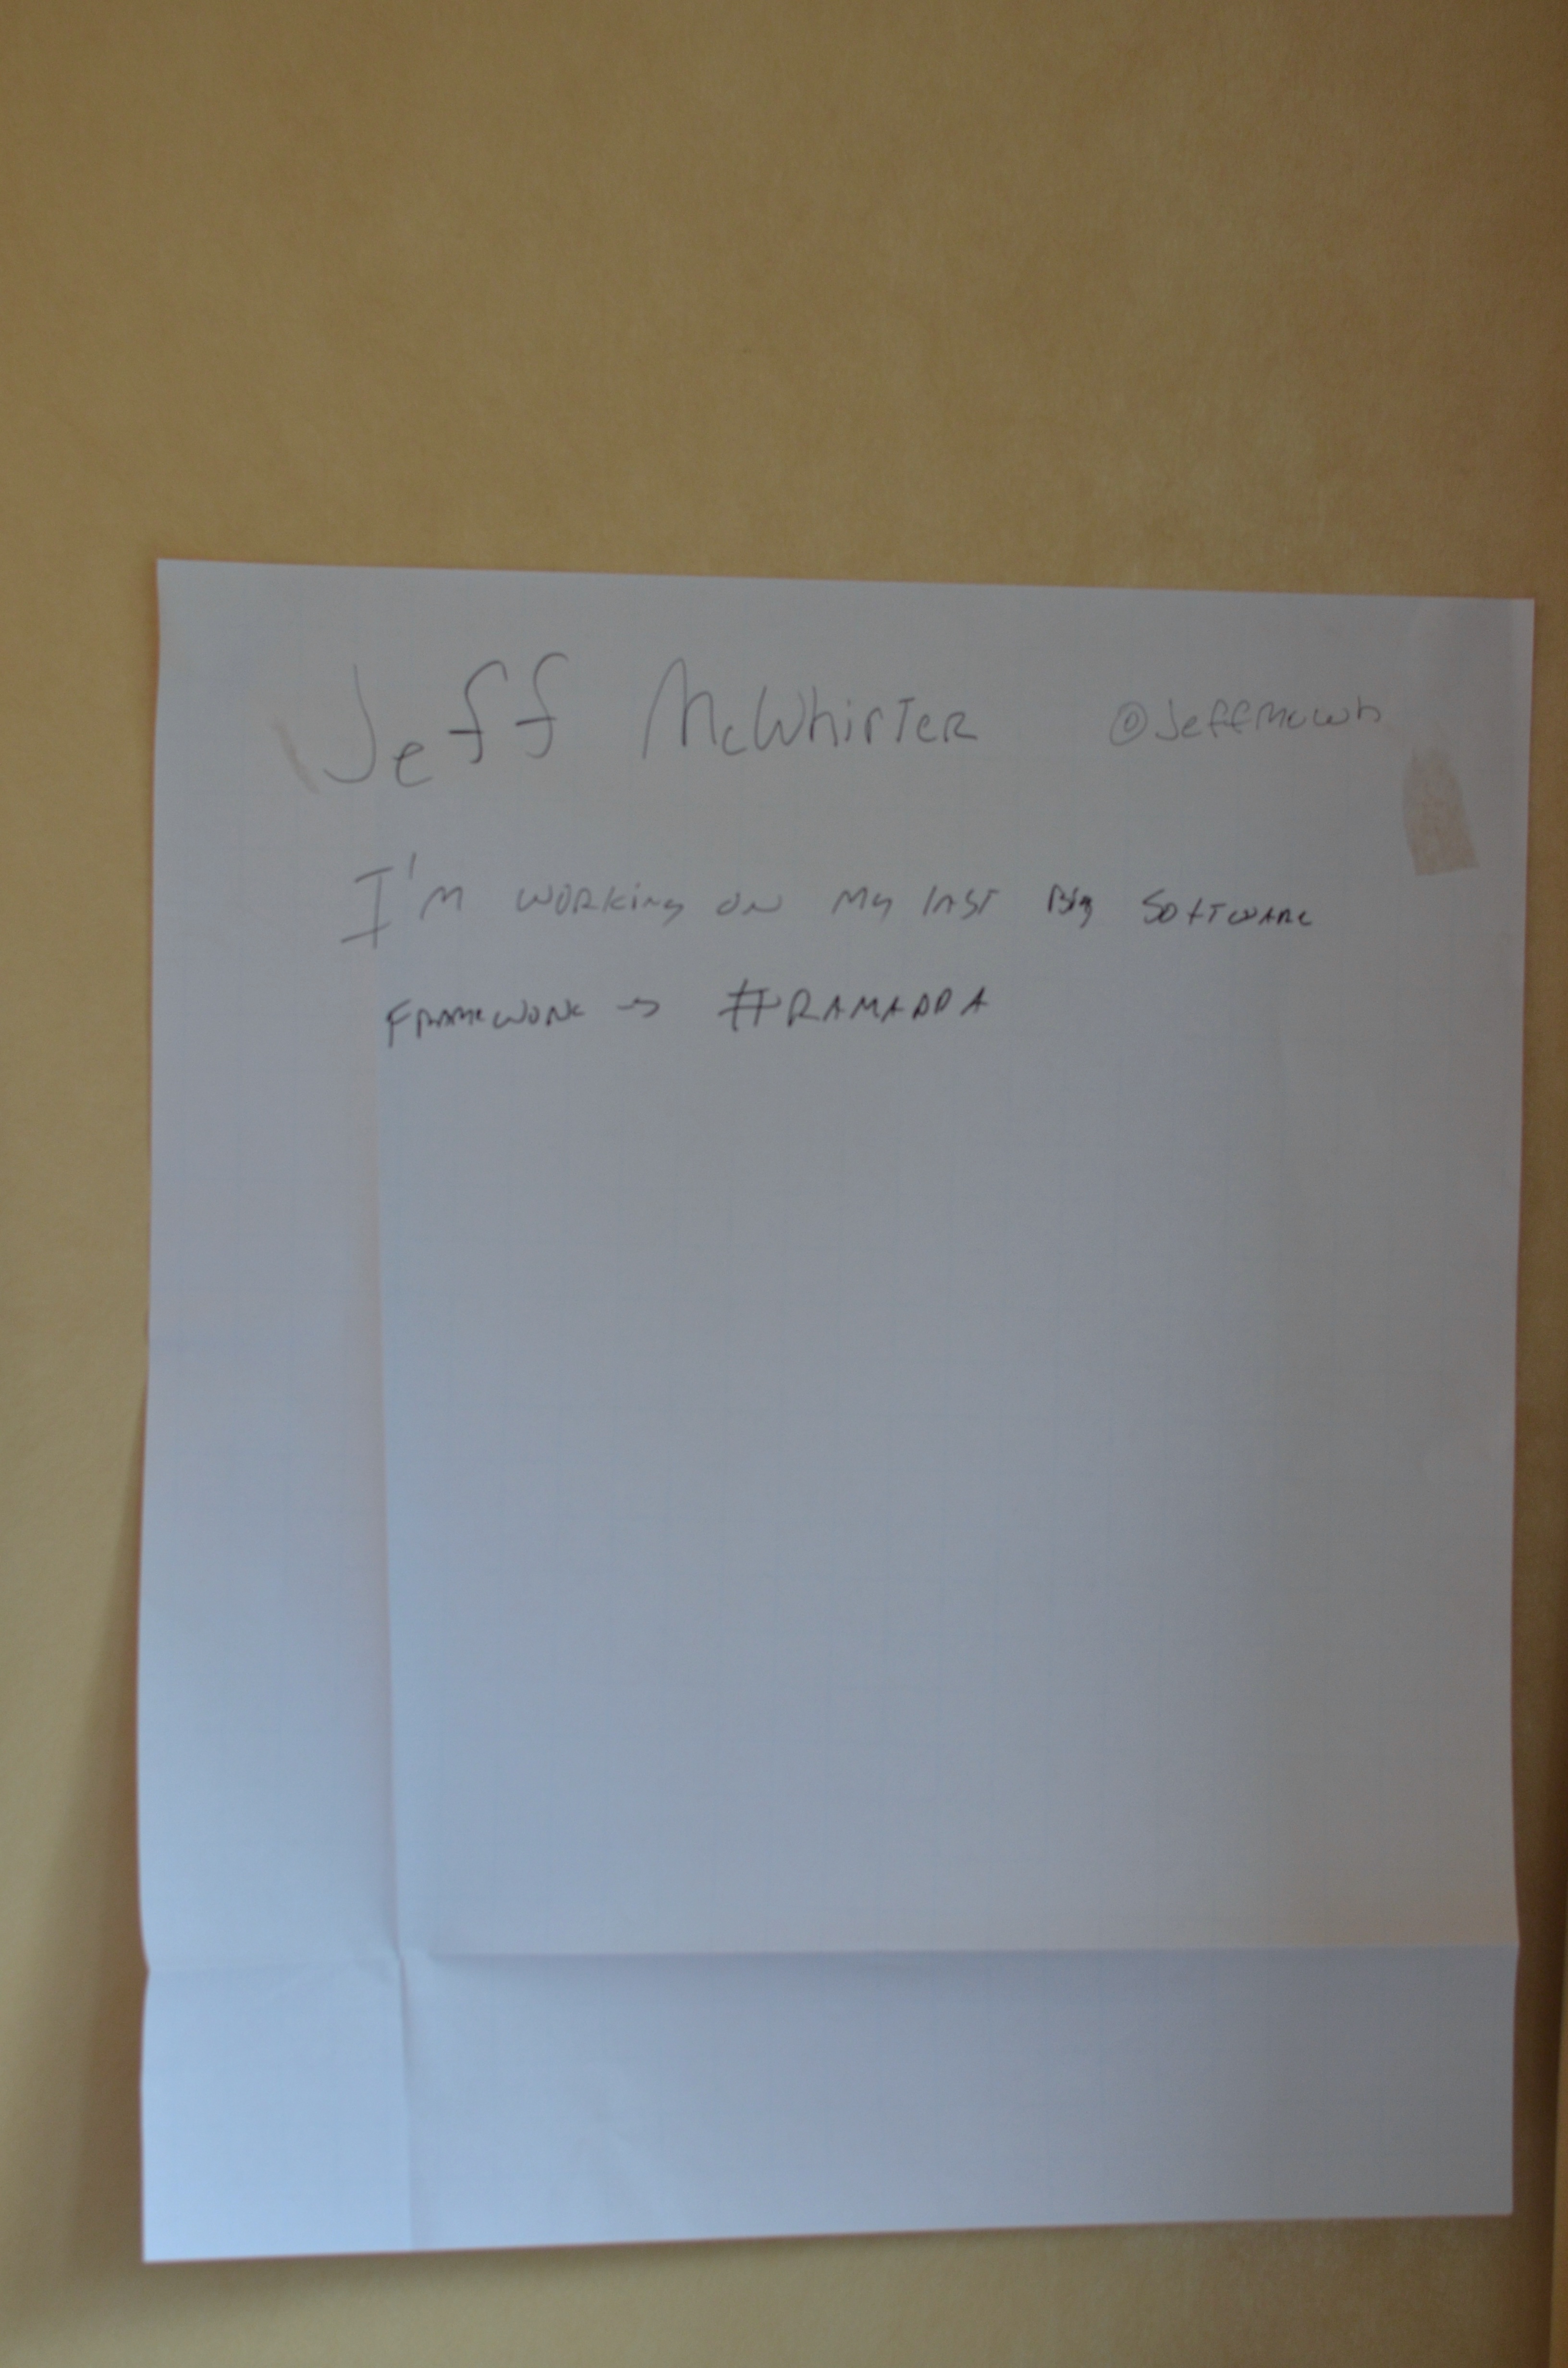 Jeff McWhirter @jeffmcwh
I'm working on my last Big Software
framework -> #RAMADDA